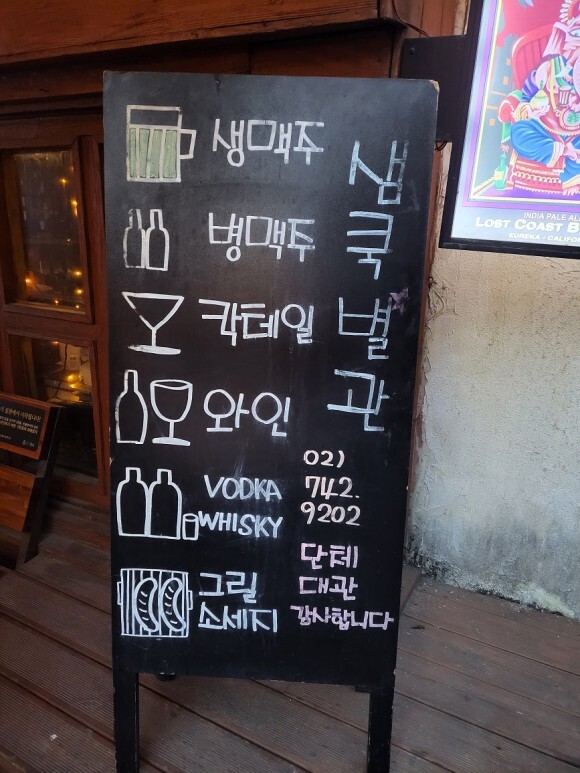 생맥주
병맥주
칵테일
와인
VODKA
WHISKY
그릴
소세지
샘쿡별관
02)
742.
9202
단체
대관
감사합니다
INDIA PALE AL
LOST COAST B
EUREKA - CALIFO